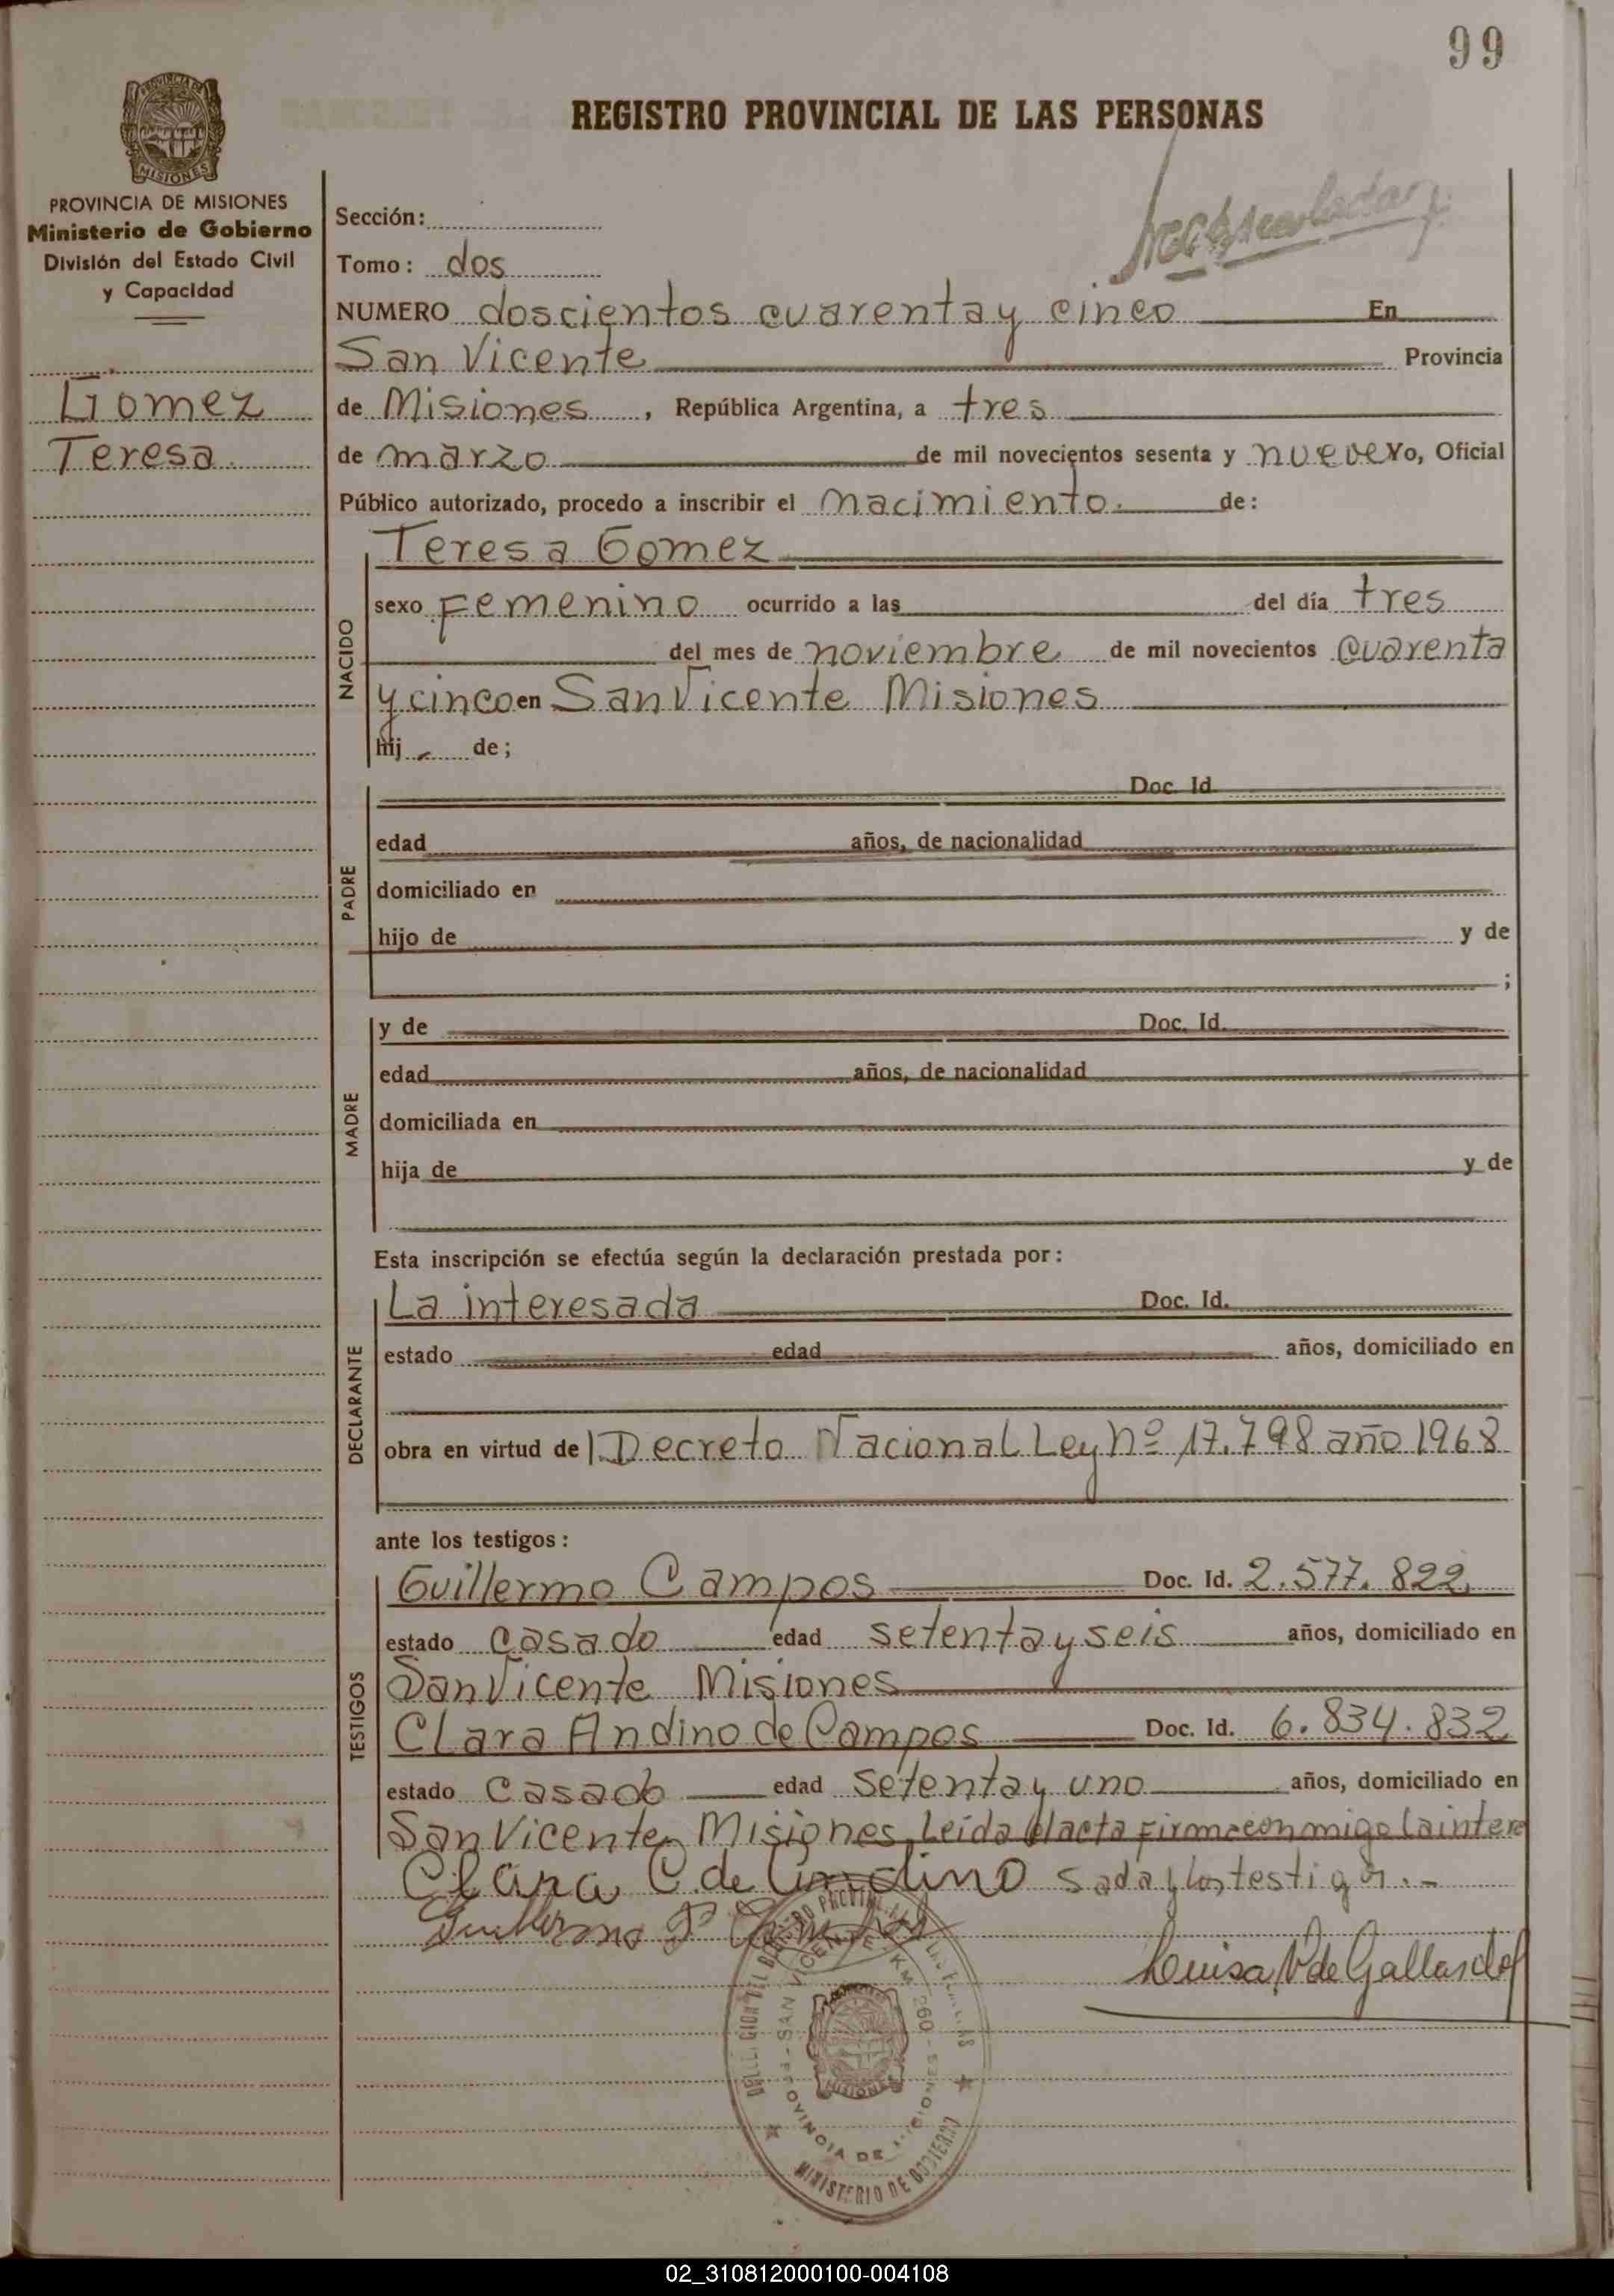 99
REGISTRO PROVINCIAL DE LAS PERSONAS
PROVINCIA DE MISIONES
Ministerio de Gobierno
División del Estado Civil
y Capacidad
Gomez
Teresa
Sección:
Tomo: dos
NUMERO doscientos cuarenta y cinco En
San Vicente Provincia
de Misiones, República Argentina, a tres
de marzo de mil novecientos sesenta y nueve Yo, Oficial
Público autorizado, procedo a inscribir el nacimiento. de:
NACIDO
Teresa Gomez
sexo Femenino ocurrido a las del día tres
del mes de noviembre de mil novecientos cuarenta
y cinco en San Vicente Misiones
hij de;
PADRE
Doc. Id.
edad años, de nacionalidad
domiciliado en
hijo de y de
;
MADRE
y de Doc. Id.
edad años, de nacionalidad
domiciliada en
hija de y de
Esta inscripción se efectúa según la declaración prestada por:
DECLARANTE
La interesada Doc. Id.
estado edad años, domiciliado en
obra en virtud de Decreto Nacional Ley Nº 17.798 año 1968
ante los testigos:
TESTIGOS
Guillermo Campos Doc. Id. 2.577.822
estado casado edad setenta y seis años, domiciliado en
San Vicente Misiones
Clara Andino de Campos Doc. Id. 6.834.832
estado casado edad setenta y uno años, domiciliado en
San Vicente Misiones, Leida el acta firma conmigo la intere
Clara C. de Andino sada y los testigos.-
Guillermo
Luisa V. de Gallardo
SAN VICENTE KM 260
PROVINCIA DE
MISIONES
MINISTERIO DE GOBIERNO
02_310812000100-004108